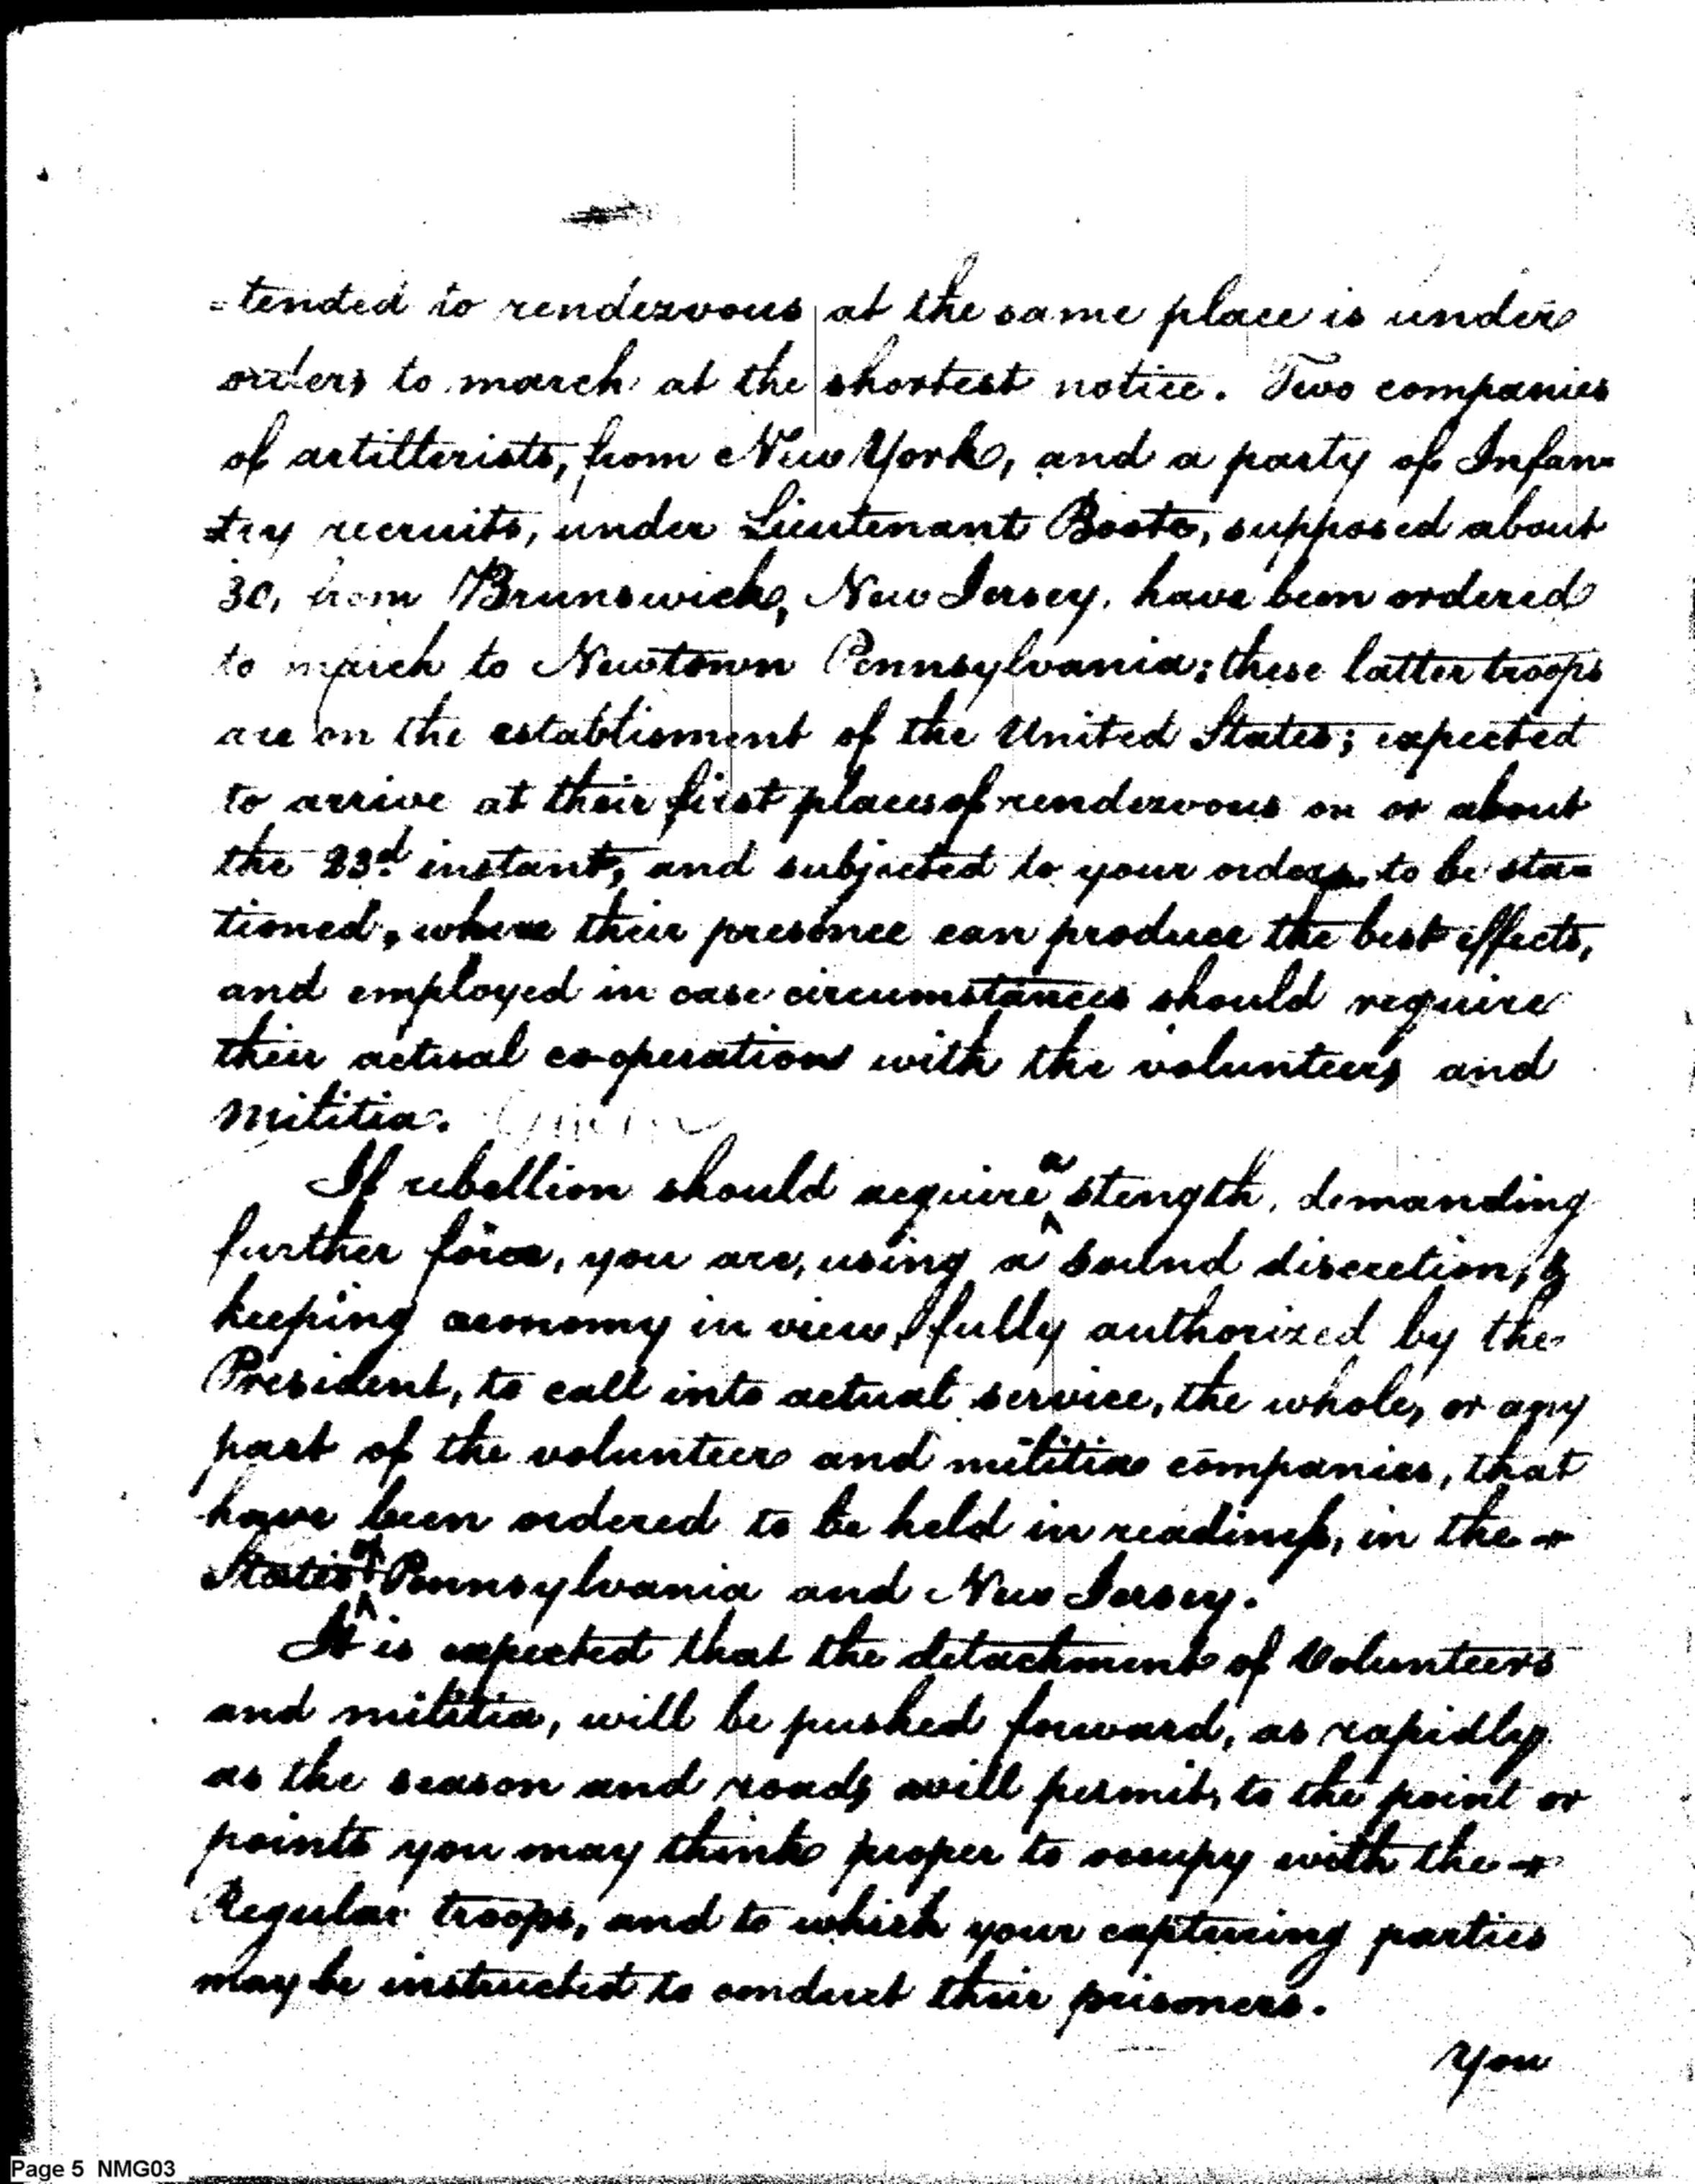 -tended to rendezvous at the same place is under
orders to march at the shortest notice. Two companies
of artillerists, from New York, and a party of Infan-
try recruits, under Lieutenant Boote, supposed about
30, from Brunswick, New Jersey, have been ordered
to march to Newtown Pennsylvania; these latter troops
are on the establisment of the United States; expected
to arrive at their first places of rendezvous on or about
the 23d. instant, and subjected to your orders, to be sta-
tioned, where their presence can produce the best effects,
and employed in case circumstances should require
their actual co-operation with the volunteers and
militia.
If rebellion should acquire a stength, demanding
further force, you are, using a sound discretion, &
keeping œconomy in view, fully authorized by the
President, to call into actual service, the whole, or any
part of the volunteer and militia companies, that
have been ordered to be held in readiness, in the
States of Pennsylvania and New Jersey.
It is expected that the detachment of Volunteers
and militia, will be pushed forward, as rapidly
as the season and roads will permit, to the point or
points you may think proper to occupy with the
Regular troops, and to which your capturing parties
may be instructed to conduct their prisoners.
You
Page 5 NMG03